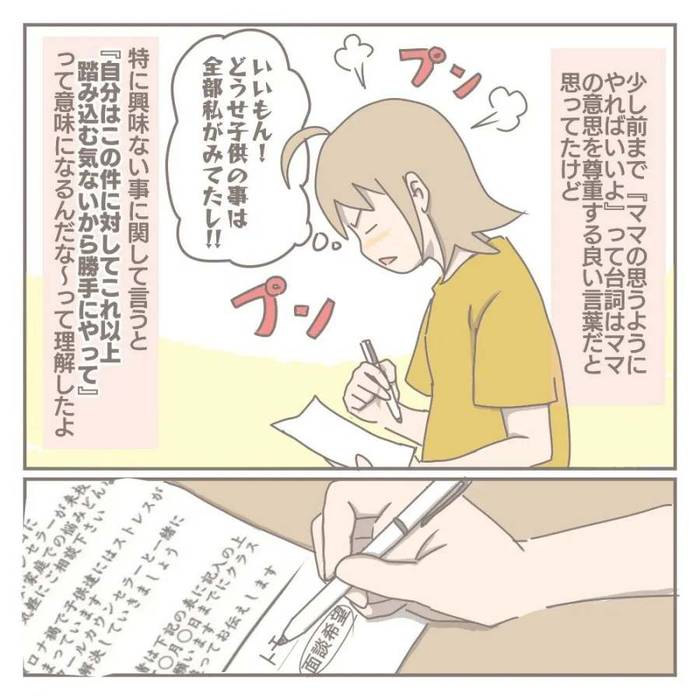 少し前まで『ママの思うように
やればいいよ』って台詞はママ
の意思を尊重する良い言葉だと
思ってたけど
プン
いいもん!
どうせ子供の事は
全部私がみてたし!!
プン
特に興味ない事に関して言うと
『自分はこの件に対してこれ以上
踏み込む気ないから勝手にやって』
って意味になるんだな〜って理解したよ
面談希望
ト
記入の上
は下記の表に
〇月〇日までにクラス
願います
ってお伝えします
ロナ禍で子供達にはストレスが
まっています
クールカウンセラーと一緒に
解決していきましょう
ンセラーが来校
家庭での悩みどん
気軽にご相談下さい